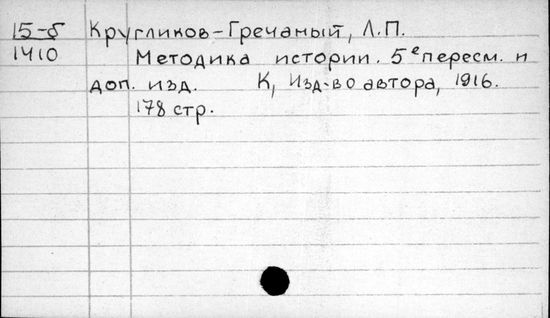 15-б Кругликов-Гречаный, Л.П.
1410 Методика истории. 5е пересм. и
доп. изд. К, Изд-во автора, 1916.
178 стр.